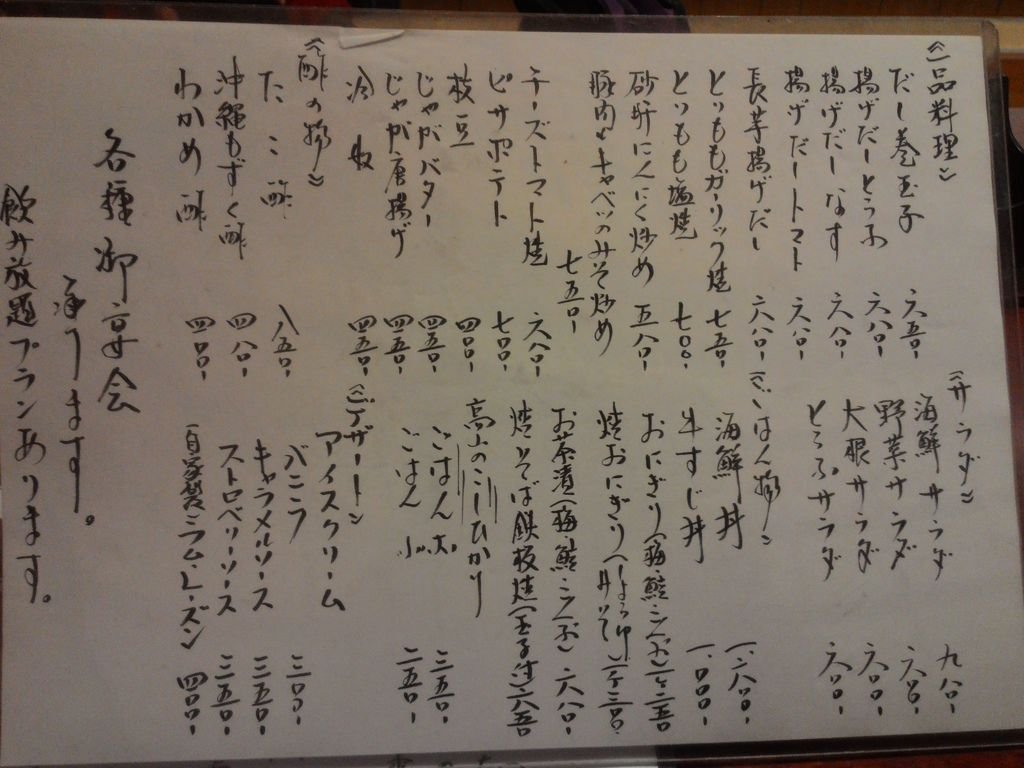 《一品料理》
だし巻玉子 六五〇-
揚げだしとうふ 六八〇-
揚げだしなす 六八〇-
揚げだしトマト 六八〇-
長芋揚げだし 六八〇-
とりももガーリック焼 七五〇-
とりもも塩焼 七〇〇-
砂肝にんにく炒め 五八〇-
豚肉とキャベツのみそ炒め 七五〇-
チーズトマト焼 六八〇-
ピザポテト 七〇〇-
枝豆 四〇〇-
じゃがバター 四五〇-
じゃが唐揚げ 四五〇-
冷奴 四五〇-
《酢の物》
たこ酢 八五〇-
沖縄もずく酢 四八〇-
わかめ酢 四〇〇-
《サラダ》
海鮮サラダ 九八〇-
野菜サラダ 六〇〇-
大根サラダ 六〇〇-
とうふサラダ 六〇〇-
《ごはん物》
海鮮丼 一、六〇〇-
牛すじ丼 一、〇〇〇-
おにぎり(梅・鮭・こんぶ) 二五〇
焼おにぎり(しょうゆ・みそ) 三〇〇
お茶漬(梅・鮭・こんぶ) 六八〇-
焼そば鉄板焼(玉子付) 六五〇
高山のこしひかり
ごはん 大 三五〇-
ごはん 小 二五〇-
《デザート》
アイスクリーム
バニラ 三〇〇-
キャラメルソース 三五〇-
ストロベリーソース 三五〇-
自家製ラム・レーズン 四〇〇-
各種御宴会
承ります。
飲み放題プランあります。